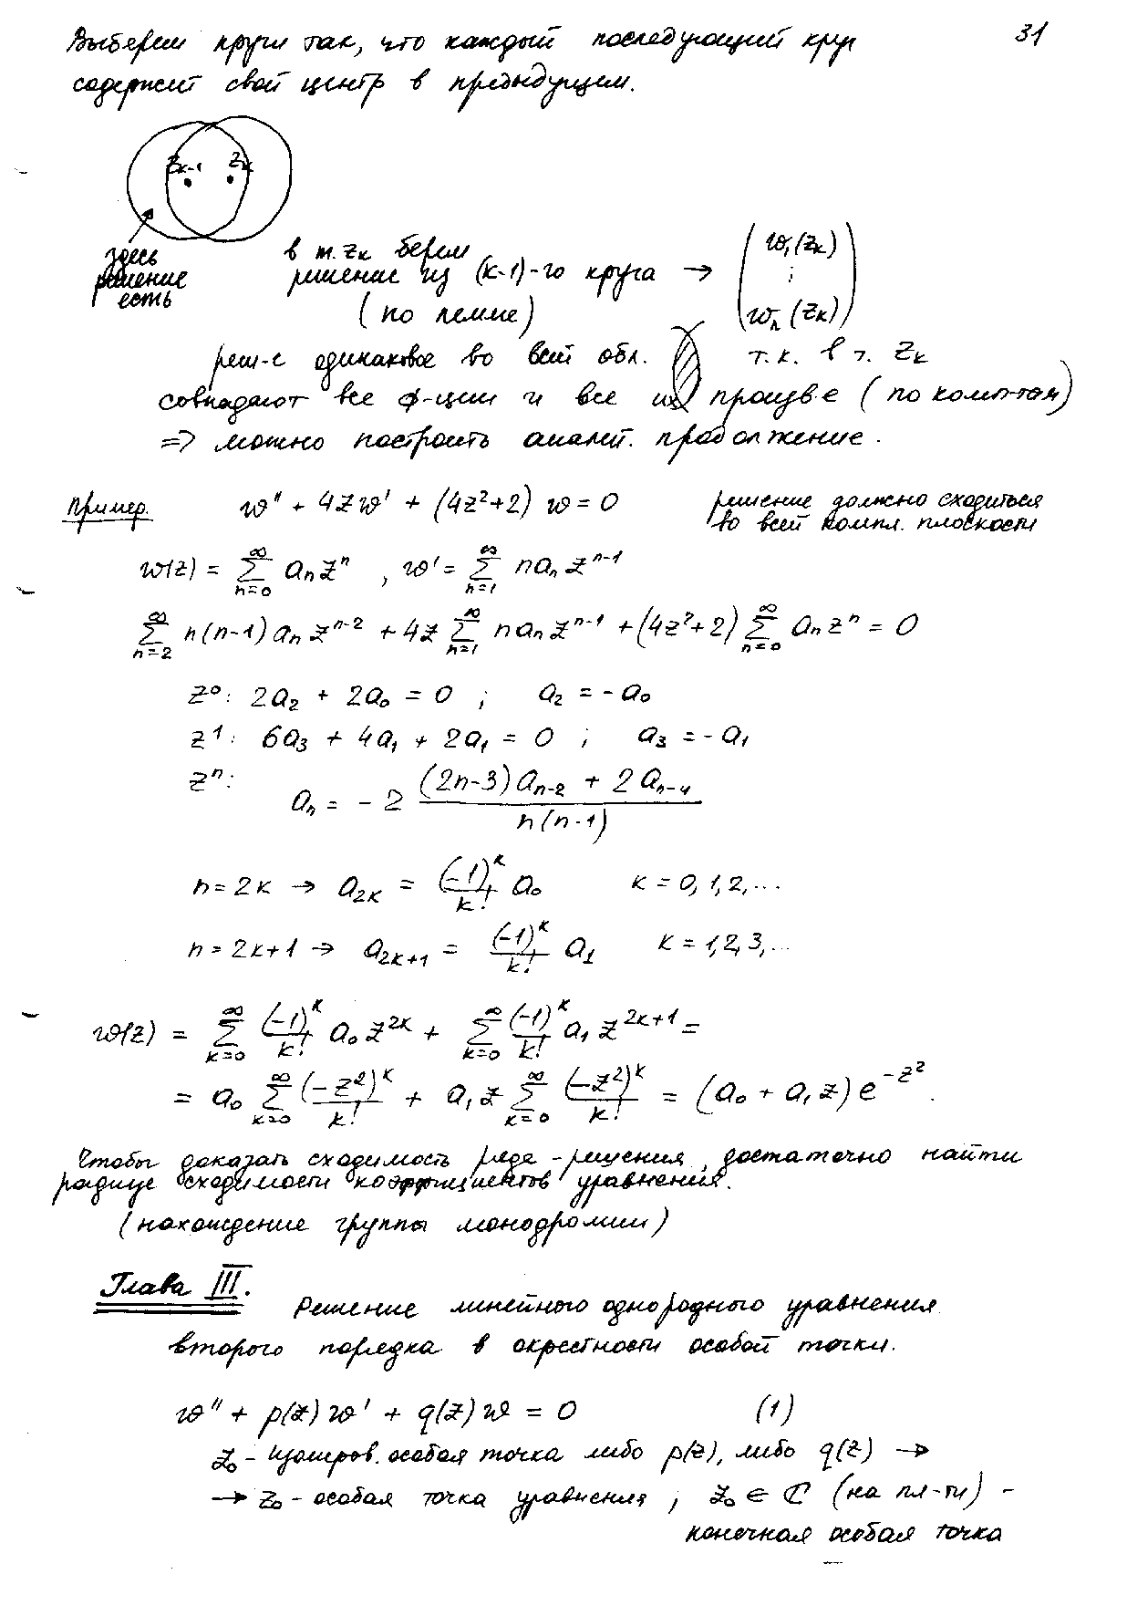 31
Выберем круги так, что каждый последующий круг
содержит свой центр в предыдущем.
z_{k-1} z_k
здесь
решение
есть
в т. z_k берем
решение из (k-1)-го круга → (w_1(z_k)
⋮
w_n(z_k))
(по лемме)
реш-е одинаковое во всей обл. т.к. в т. z_k
совпадают все ф-ции и все их произв-е (по комп-там)
=> можно построить аналит. продолжение.
Пример. w'' + 4zw' + (4z²+2) w = 0
решение должно сходиться
во всей компл. плоскости
w(z) = ∑_{n=0}^{∞} a_n z^n , w' = ∑_{n=1}^{∞} n a_n z^{n-1}
∑_{n=2}^{∞} n(n-1) a_n z^{n-2} + 4z ∑_{n=1}^{∞} n a_n z^{n-1} + (4z²+2) ∑_{n=0}^{∞} a_n z^n = 0
z^0: 2a_2 + 2a_0 = 0 ; a_2 = -a_0
z^1: 6a_3 + 4a_1 + 2a_1 = 0 ; a_3 = -a_1
z^n: a_n = -2 \frac{(2n-3)a_{n-2} + 2a_{n-4}}{n(n-1)}
n=2k → a_{2k} = \frac{(-1)^k}{k!} a_0 k = 0,1,2,...
n=2k+1 → a_{2k+1} = \frac{(-1)^k}{k!} a_1 k = 1,2,3,...
w(z) = ∑_{k=0}^{∞} \frac{(-1)^k}{k!} a_0 z^{2k} + ∑_{k=0}^{∞} \frac{(-1)^k}{k!} a_1 z^{2k+1} =
= a_0 ∑_{k=0}^{∞} \frac{(-z²)^k}{k!} + a_1 z ∑_{k=0}^{∞} \frac{(-z²)^k}{k!} = (a_0 + a_1 z) e^{-z²}.
Чтобы доказать сходимость ряда-решения, достаточно найти
радиус сходимости коэффициентов уравнения.
(нахождение группы монодромии)
Глава III.
Решение линейного однородного уравнения
второго порядка в окрестности особой точки.
w'' + p(z)w' + q(z)w = 0 (1)
z_0 - изолиров. особая точка либо p(z), либо q(z) →
→ z_0 - особая точка уравнения ; z_0 ∈ ℂ (на пл-ти) -
конечная особая точка